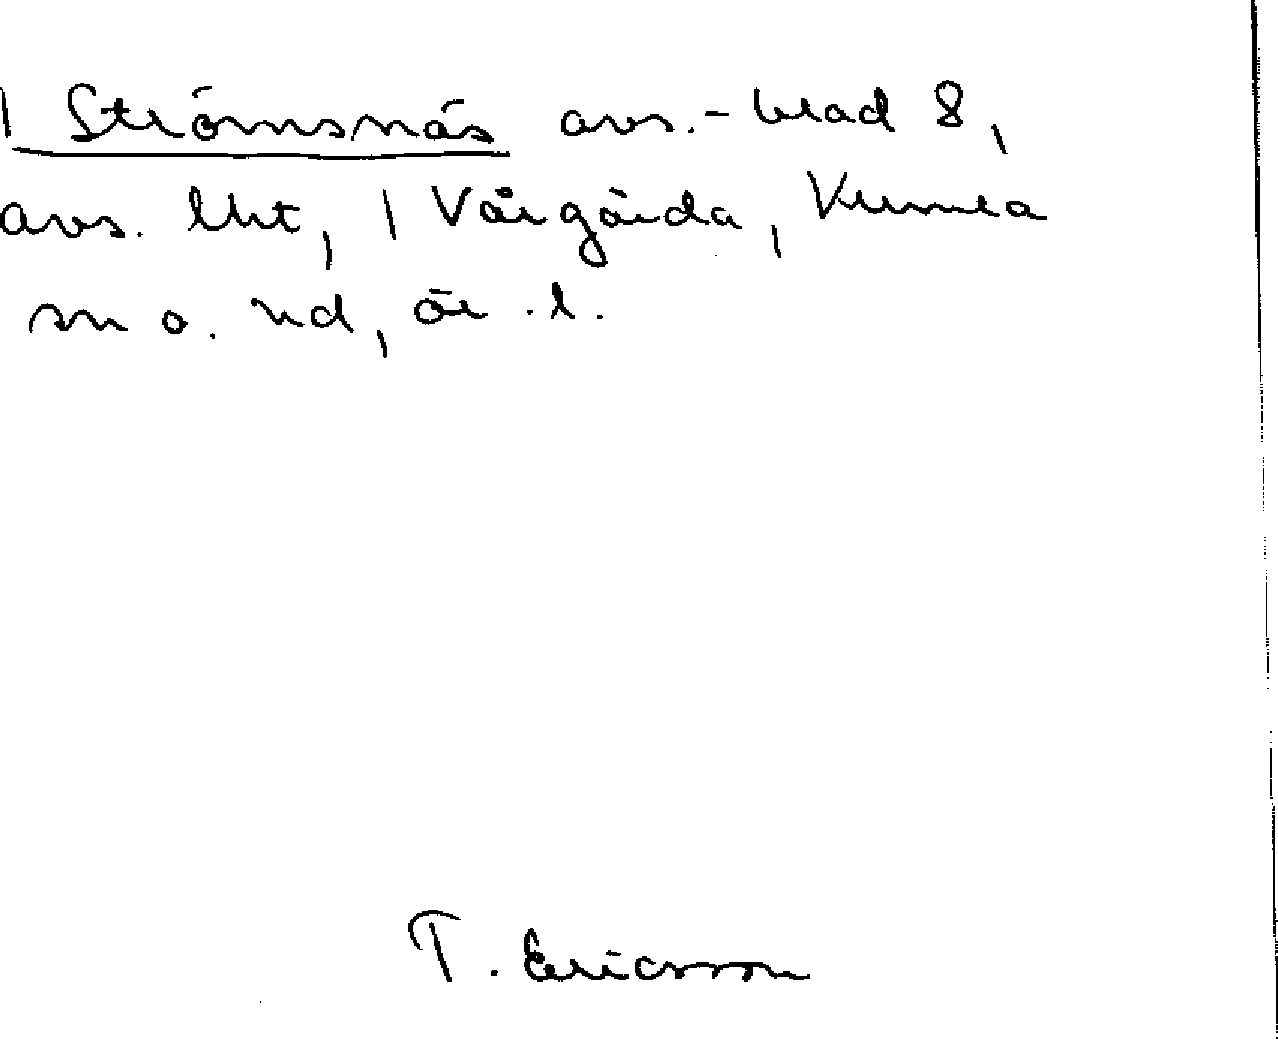 1 Strömsnäs avs.-blad 8,
avs. lht, 1 Vårgårda, Kumla
sn o. hd, ör. l.
T. Ericsson